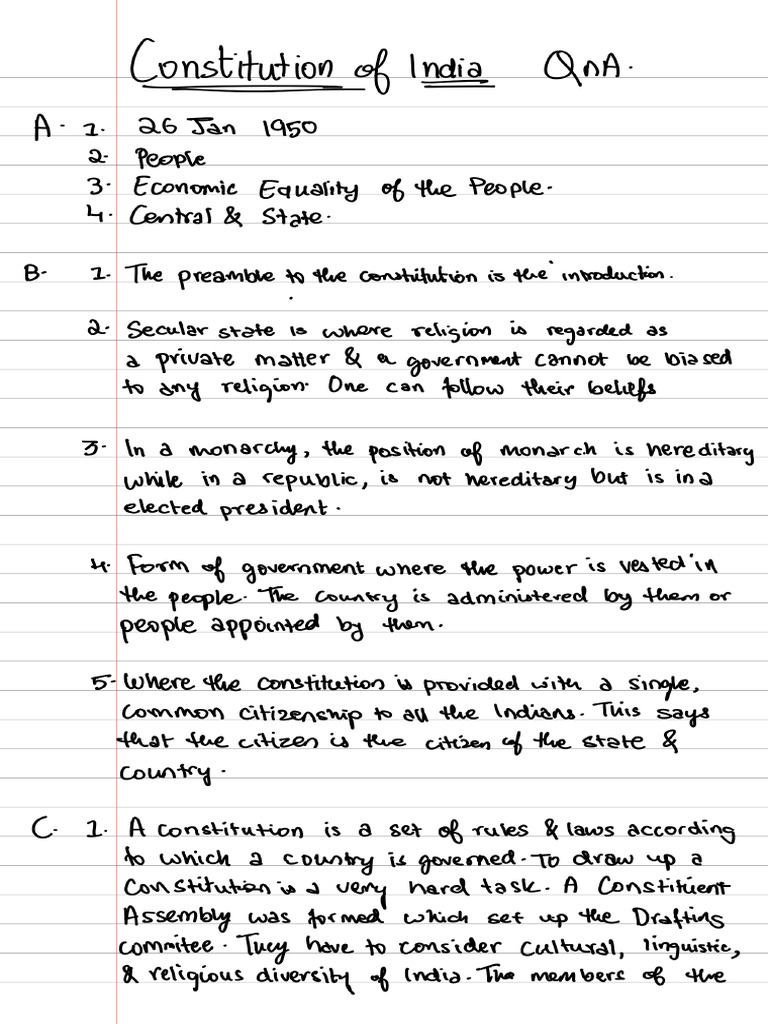 Constitution of India QnA.
A. 1. 26 Jan 1950
2. People
3. Economic Equality of the People.
4. Central & State.
B. 1. The preamble to the constitution is the introduction.
2. Secular state is where religion is regarded as
a private matter & a government cannot be biased
to any religion. One can follow their beliefs
3. In a monarchy, the position of monarch is hereditary
while in a republic, is not hereditary but is in a
elected president.
4. Form of government where the power is vested in
the people. The country is administered by them or
people appointed by them.
5. Where the constitution is provided with a single,
common citizenship to all the Indians. This says
that the citizen is the citizen of the state &
country.
C. 1. A constitution is a set of rules & laws according
to which a country is governed. To draw up a
constitution is a very hard task. A Constituent
Assembly was formed which set up the Drafting
commitee. They have to consider cultural, linguistic,
& religious diversity of India. The members of the